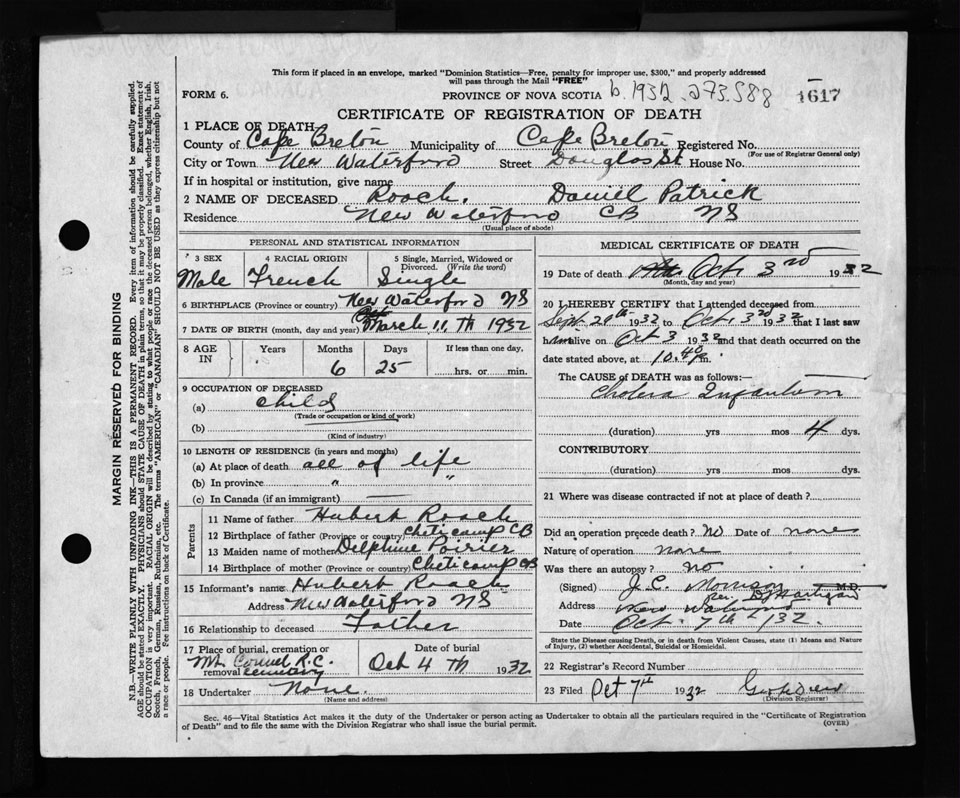 This form if placed in an envelope, marked "Dominion Statistics—Free, penalty for improper use, $300," and properly addressed
will pass through the Mail "FREE"
FORM 6. PROVINCE OF NOVA SCOTIA b. 1932. 273.588 1617
CERTIFICATE OF REGISTRATION OF DEATH
1 PLACE OF DEATH
County of Cape Breton Municipality of Cape Breton Registered No.
(For use of Registrar General only)
City or Town New Waterford Street Douglas St House No.
If in hospital or institution, give name
2 NAME OF DECEASED Roach. Daniel Patrick
Residence New Waterford CB NS
(Usual place of abode)
PERSONAL AND STATISTICAL INFORMATION
3 SEX 4 RACIAL ORIGIN 5 Single, Married, Widowed or Divorced. (Write the word)
Male French Single
6 BIRTHPLACE (Province or country) New Waterford NS
7 DATE OF BIRTH (month, day and year) March 11 th 1932
8 AGE IN Years Months Days If less than one day,
6 25 hrs. or min.
9 OCCUPATION OF DECEASED
(a) Child
(Trade or occupation or kind of work)
(b)
(Kind of industry)
10 LENGTH OF RESIDENCE (in years and months)
(a) At place of death all of life
(b) In province " "
(c) In Canada (if an immigrant) —
Parents
11 Name of father Hubert Roach
12 Birthplace of father (Province or country) Cheticamp CB
13 Maiden name of mother Delphine Poirier
14 Birthplace of mother (Province or country) Cheticamp CB
15 Informant's name Hubert Roach
Address New Waterford NS
16 Relationship to deceased Father
17 Place of burial, cremation or removal Date of burial
Mt. Carmel R.C. cemetary Oct 4 th 1932
18 Undertaker None.
(Name and address)
MEDICAL CERTIFICATE OF DEATH
19 Date of death Oct 3rd 1932
(Month, day and year)
20 I HEREBY CERTIFY that I attended deceased from
Sept. 29th 1932 to Oct. 3rd 1932 that I last saw
him alive on Oct 3 1932 and that death occurred on the
date stated above, at 10.40 p.m.
The CAUSE OF DEATH was as follows:—
Cholera Infantum
(duration) yrs mos 4 dys.
CONTRIBUTORY
(duration) yrs mos dys.
21 Where was disease contracted if not at place of death?
Did an operation precede death? No Date of none
Nature of operation none
Was there an autopsy? no
(Signed) J. C. Morrison M.D.
Address New Waterford
Date Oct. 7th 1932.
State the Disease causing Death, or in death from Violent Causes, state (1) Means and Nature
of Injury, (2) whether Accidental, Suicidal or Homicidal.
22 Registrar's Record Number
23 Filed Oct 7th 1932
(Division Registrar)
Sec. 46—Vital Statistics Act makes it the duty of the Undertaker or person acting as Undertaker to obtain all the particulars required in the "Certificate of Registration
of Death" and to file the same with the Division Registrar who shall issue the burial permit. (OVER)
MARGIN RESERVED FOR BINDING
N.B.—WRITE PLAINLY WITH UNFADING INK—THIS IS A PERMANENT RECORD. Every item of information should be carefully supplied.
AGE should be stated EXACTLY. PHYSICIANS should STATE CAUSE OF DEATH in plain terms, so that it may be properly classified. Exact statement of
OCCUPATION is very important. RACIAL ORIGIN will be described by stating to what people or race the deceased person belonged, whether English, Irish,
Scotch, French, German, Russian, Ruthenian, etc. The terms "AMERICAN" or "CANADIAN" SHOULD NOT BE USED as they express citizenship but not
a race or people. See instructions on back of Certificate.